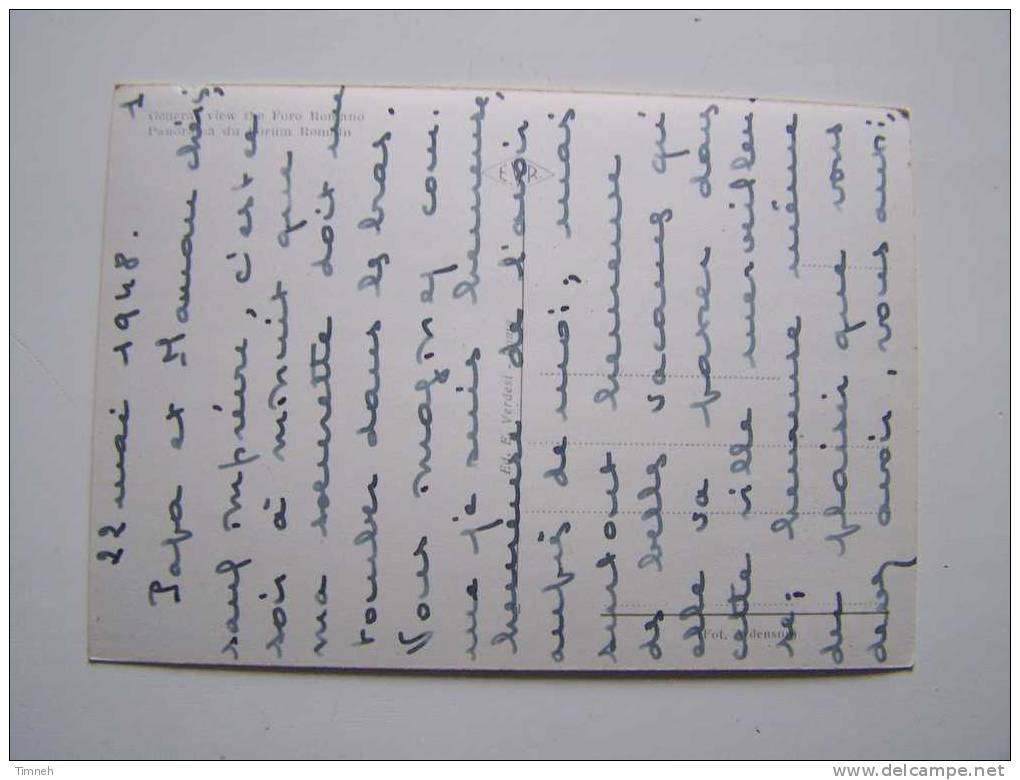 22 mai 1948. 1
Papa et Maman chéris,
sauf imprévu, c'est ce
soir à minuit que
ma soeurette doit me
tomber dans les bras.
Vous imaginez com.
me je suis heureuse,
heureuse de l'avoir
auprès de moi, mais
surtout heureuse
des belles vacances qu'
elle va passer dans
cette ville merveilleu.
se; heureuse même
du plaisir que vous
devez avoir, vous aussi,
General view the Foro Romano
Panorama du Forum Romain
E R
Ed. E. Verdesi - Roma
Fot.
Timneh
delcampe.net